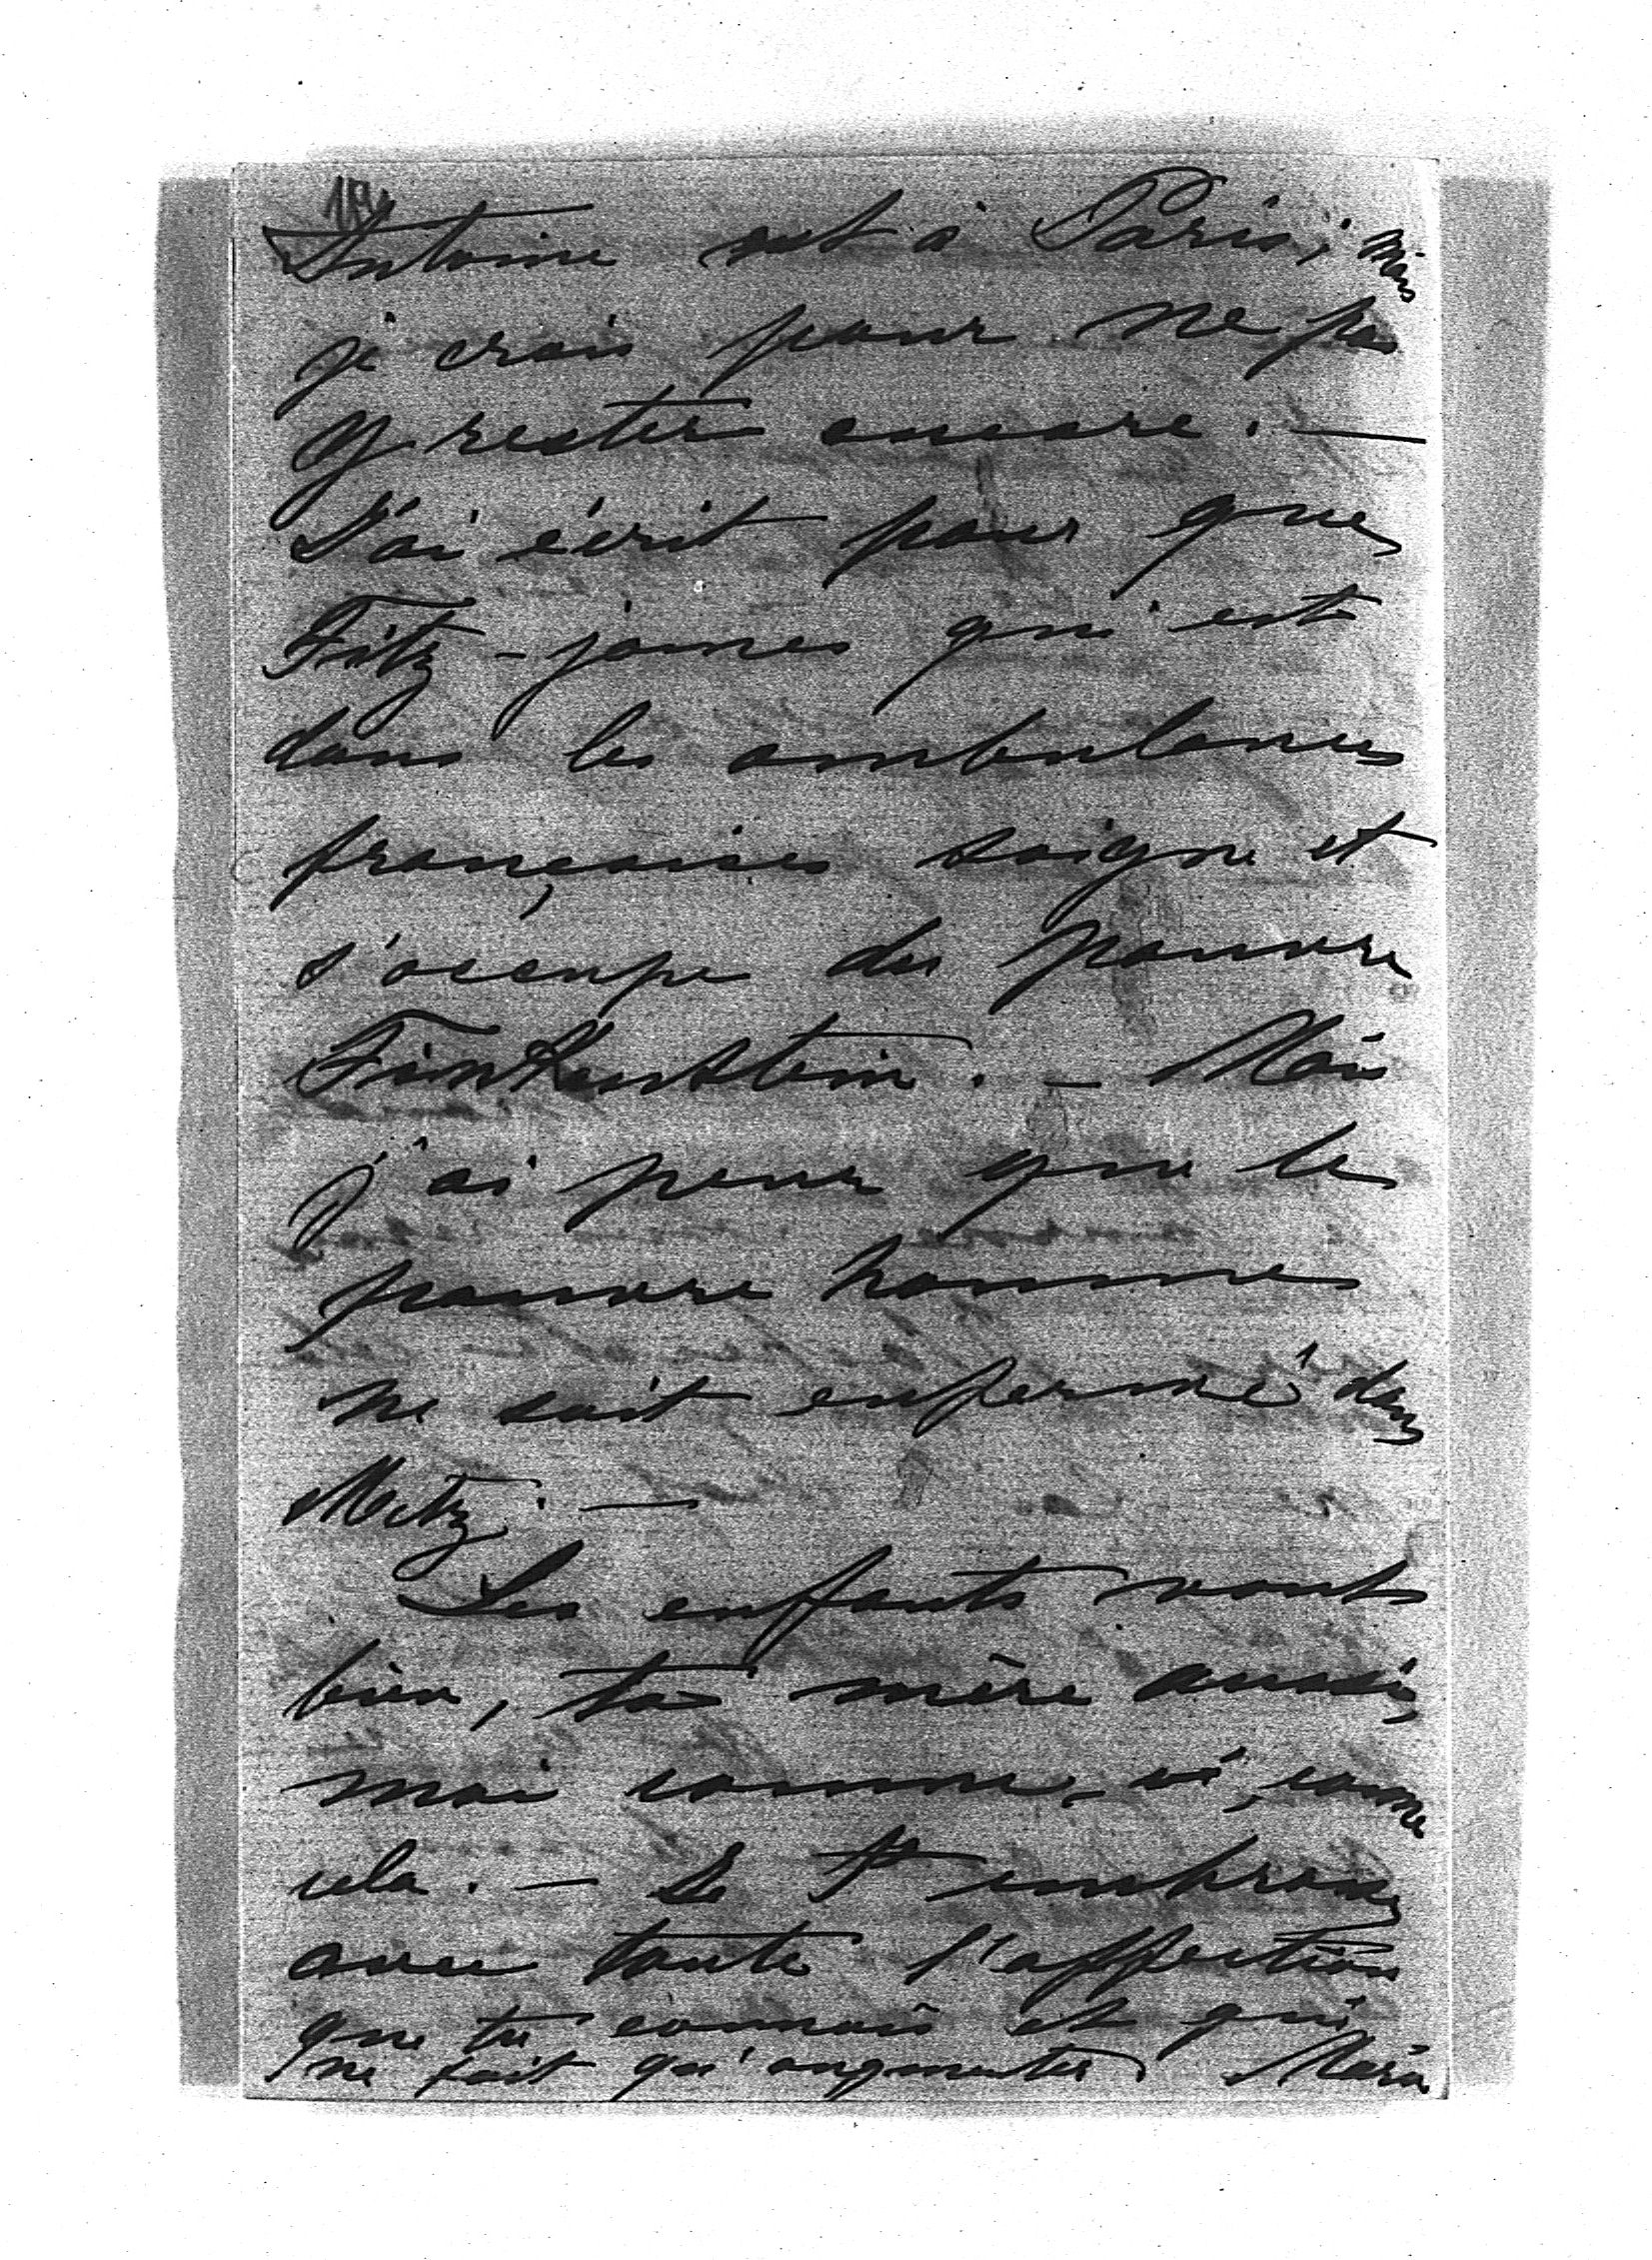 Antoine est à Paris; Mais
je crois pour ne pas
y rester encore. —
J'ai écrit pour que
Fitz-james qui est
dans les ambulances
françaises soigne et
s'occupe du pauvre
Finkenstein. — Mais
j'ai peur que le
pauvre homme
ne soit enfermé dans
Metz. —
Les enfants vont
bien, ta mère aussi,
moi comme ci, comme
cela. — Je t'embrasse
avec toute l'affection
que tu connais et qui
ne fait qu'augmenter. Marie